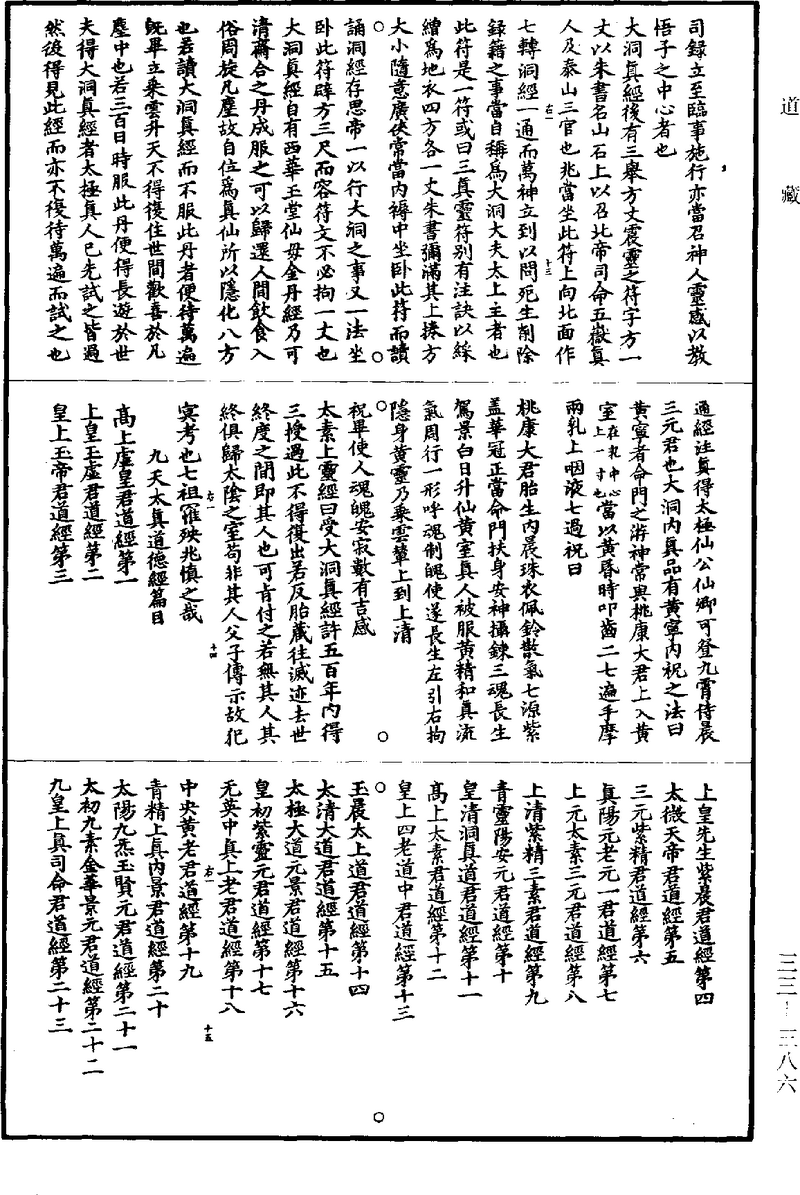 道藏
司録立至臨事施行亦當召神人靈感以教
悟子之中心者也
大洞真經後有三舉方丈震靈之符字方一
丈以朱書名山石上以召北帝司命五嶽真
人及泰山三官也兆當坐此符上向北面作
七轉洞經一通而萬神立到以問死生削除
録籍之事當自稱為大洞大夫太上主者也
此符是一符或曰三真靈符别有注訣以綵
繒為地衣四方各一丈朱書彌滿其上捲方
大小隨意廣俠常當内褥中坐卧此符而讀
誦洞經存思帝一以行大洞之事又一法坐
卧此符辟方三尺而容符文不必拘一丈也
大洞真經自有西華玉堂仙母金丹經乃可
清齋合之丹成服之可以歸還人間飲食入
俗周旋凡塵故自位為真仙所以隱化八方
也若讀大洞真經而不服此丹者便待萬遍
既畢立乘雲升天不得復住世間歡喜於凡
塵中也若三百日時服此丹便得長遊於世
夫得大洞真經者太極真人已先試之皆過
然後得見此經而亦不復待萬遍而試之也
通經注真得太極仙公仙卿可登九霄侍晨
三元君也大洞内真品有黄寧内祝之法曰
黄寧者命門之游神常與桃康大君上入黄
室在乳中心上一寸也當以黄昏時叩齒二七遍手摩
兩乳上咽液七過祝曰
桃康大君胎生内晨珠衣佩鈴散氣七源紫
蓋華冠正當命門扶身安神攝錬三魂長生
駕景白日升仙黄室真人被服黄精和真流
氣周行一形呼魂制魄使遂長生左引右拘
隱身黄靈乃乘雲輦上到上清
祝畢使人魂魄安寂數有吉感
太素上靈經曰受大洞真經許五百年内得
三授過此不得復出若反胎蔵往滅迹去世
終度之間即其人也可肯付之若無其人其
終俱歸太陰之室苟非其人父子傳示故犯
冥考也七祖罹殃兆慎之哉
九天太真道德經篇目
高上虚皇君道經第一
上皇玉虚君道經第二
皇上玉帝君道經第三
上皇先生紫晨君道經第四
太微天帝君道經第五
三元紫精君道經第六
真陽元老元一君道經第七
上元太素三元君道經第八
上清紫精三素君道經第九
青靈陽安元君道經第十
皇清洞真道君道經第十一
高上太素君道經第十二
皇上四老道中君道經第十三
玉晨太上道君道經第十四
太清大道君道經第十五
太極大道元景君道經第十六
皇初紫靈元君道經第十七
无英中真上老君道經第十八
中央黄老君道經第十九
青精上真内景君道經第二十
太陽九炁玉賢元君道經第二十一
太初九素金華景元君道經第二十二
九皇上真司命君道經第二十三
三三—三八六